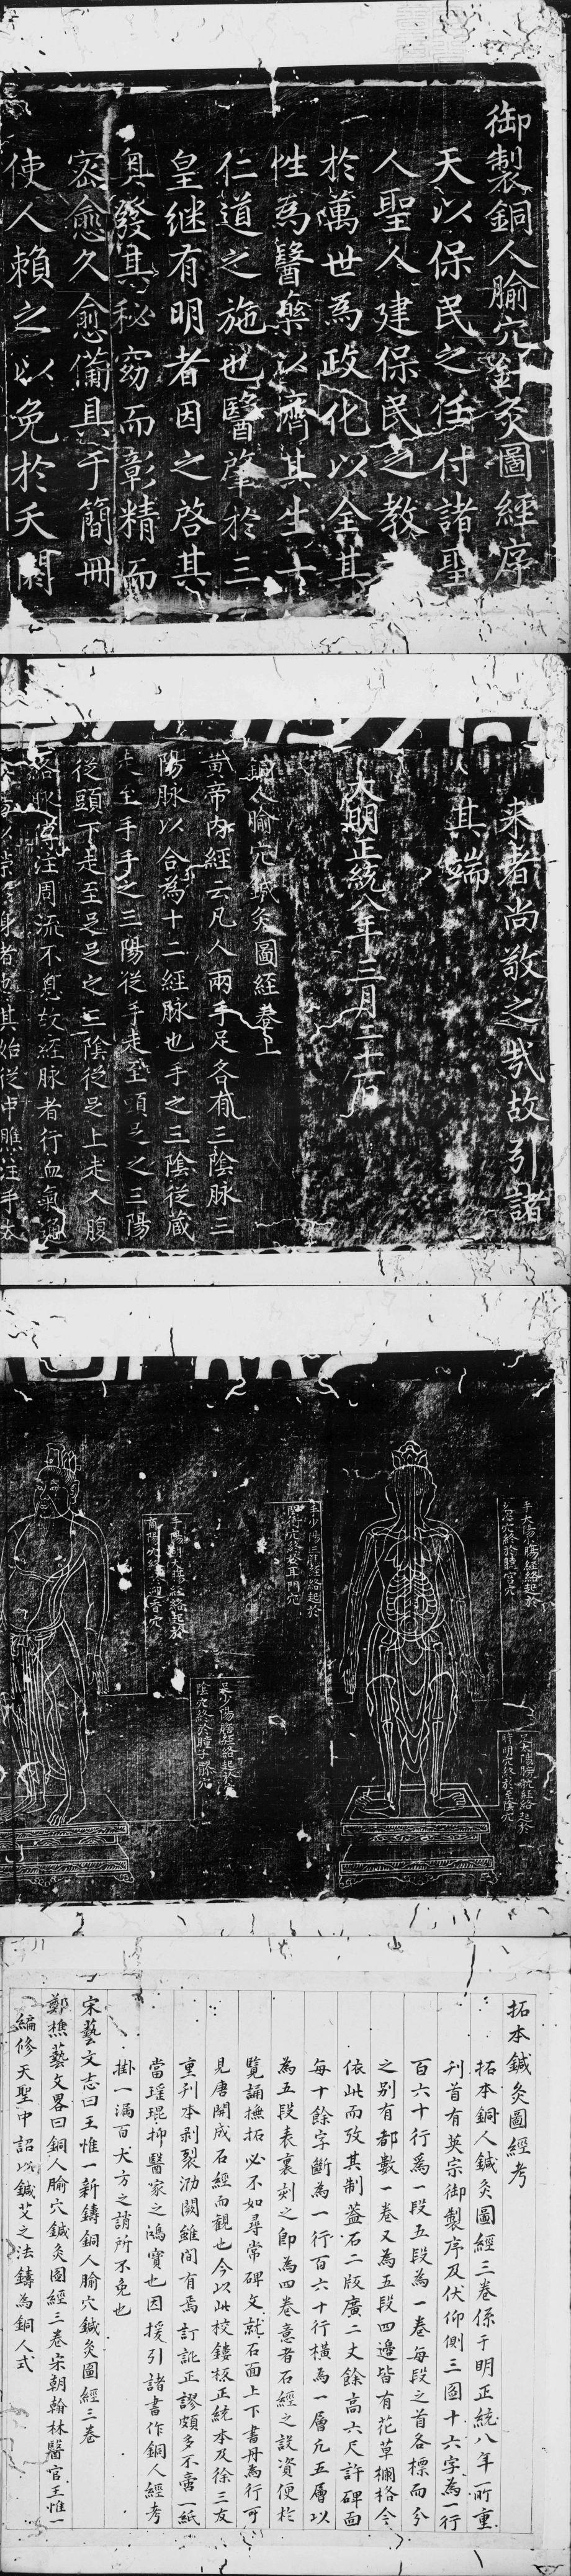 御製銅人腧穴針灸圖經序
天以保民之任付諸聖
人聖人建保民之教
於萬世為政化以全其
性為醫藥以濟其生一
仁道之施也醫肇於三
皇継有明者因之啓其
奥發其秘窈而彰精而
密愈久愈備具于簡冊
使人賴之以免於夭閼
来者尚敬之㢤故引諸
其端
大明正統八年三月二十一日
銅人腧穴鍼灸圖經卷上
黄帝内經云凡人兩手足各有三陰脉三
陽脉以合為十二經脉也手之三陰從藏
走至手手之三陽從手走至頭足之三陽
從頭下走至足足之三陰從足上走入腹
絡脉傳注周流不息故經脉者行血氣通
者也其始從中膲注手太
手太陽小腸經絡起於
少澤穴終於聽宫穴
足太陽膀胱經絡起於
睛明穴終於至陰穴
手少陽三膲經絡起於
關衝穴終於耳門穴
手陽明大腸經絡起於
商陽穴終於迎香穴
足少陽膽經絡起於竅
陰穴終於瞳子髎穴
拓本鍼灸圖經考
拓本銅人鍼灸圖經三卷係于明正統八年所重
刊首有英宗御製序及伏仰側三圖十六字為一行
百六十行爲一段五段為一卷每段之首各標而分
之别有都數一卷又為五段四邉皆有花草欄格今
依此而攷其制蓋石二版廣二丈餘高六尺許碑面
每十餘字斷為一行百六十行横為一層凢五層以
為五段表裏刻之即為四卷意者石經之設資便於
覽誦撫拓必不如尋常碑文就石面上下書丹為行可
見唐開成石經而觀也今以此校鏤板正統本及徐三友
重刊本剥裂泐闕雖間有焉訂訛正謬頗多不啻一紙
當瑶琨抑醫家之鴻寶也因援引諸書作銅人經考
掛一漏百大方之誚所不免也
宋藝文志曰王惟一新鑄銅人腧穴鍼灸圖經三卷
鄭樵藝文畧曰銅人腧穴鍼灸圖經三卷宋朝翰林醫官王惟一
編修天聖中詔以鍼艾之法鑄為銅人式